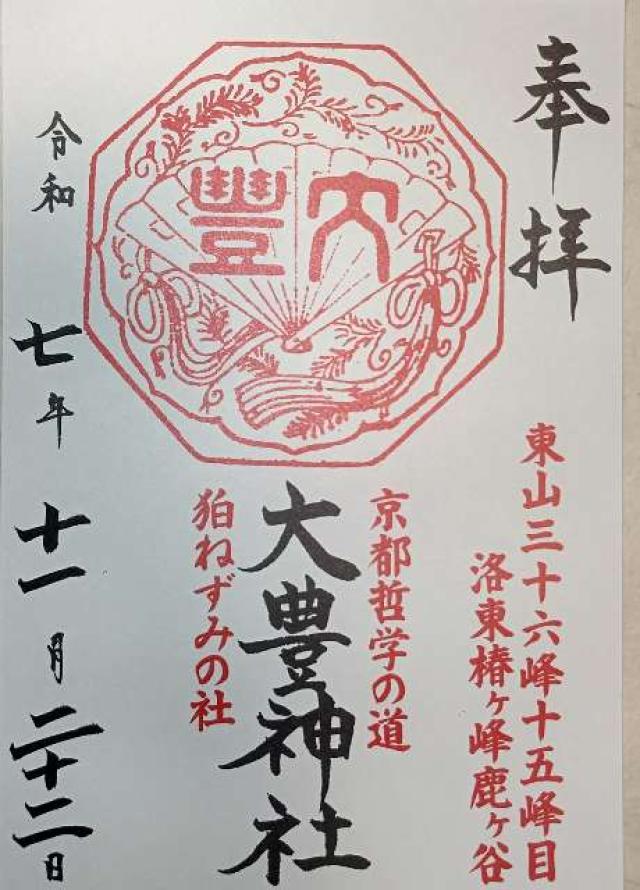 奉拝
東山三十六峰十五峰目
洛東椿ヶ峰鹿ヶ谷
大豊
京都哲学の道
大豊神社
狛ねずみの社
令和七年十一月二十二日